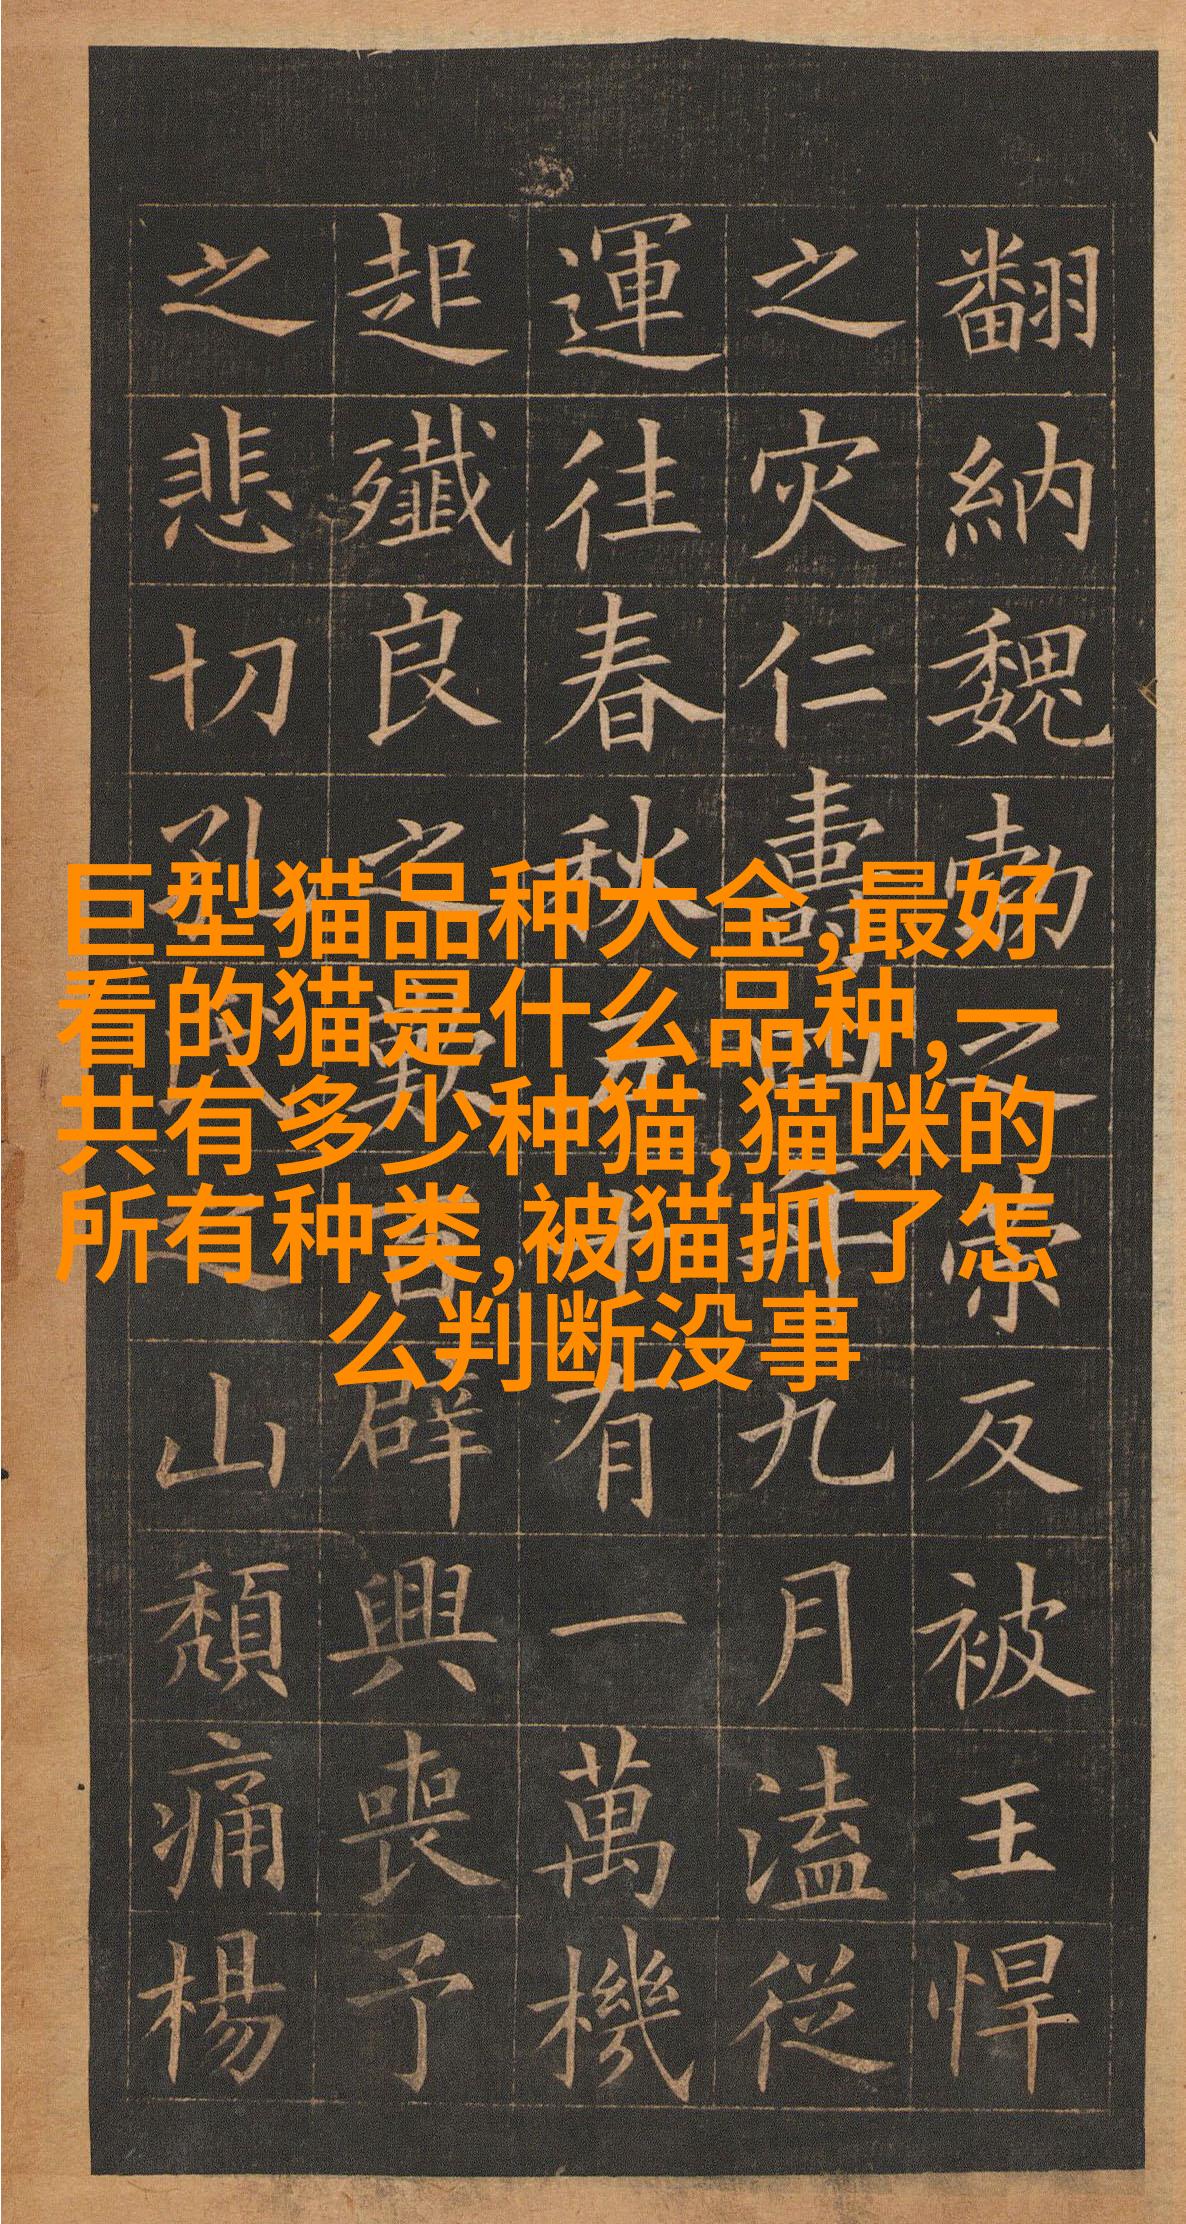 巨型猫品种大全,最好
看的猫是什么品种,一
共有多少种猫,猫咪的
所有种类,被猫抓了怎
么判断没事
翻納魏勃之反被王悍
之灾仁壽四年九月溘従
運往春秋五十有一萬機
起殲良之歎百辟興喪予
之悲切孔氏之山頹痛楊